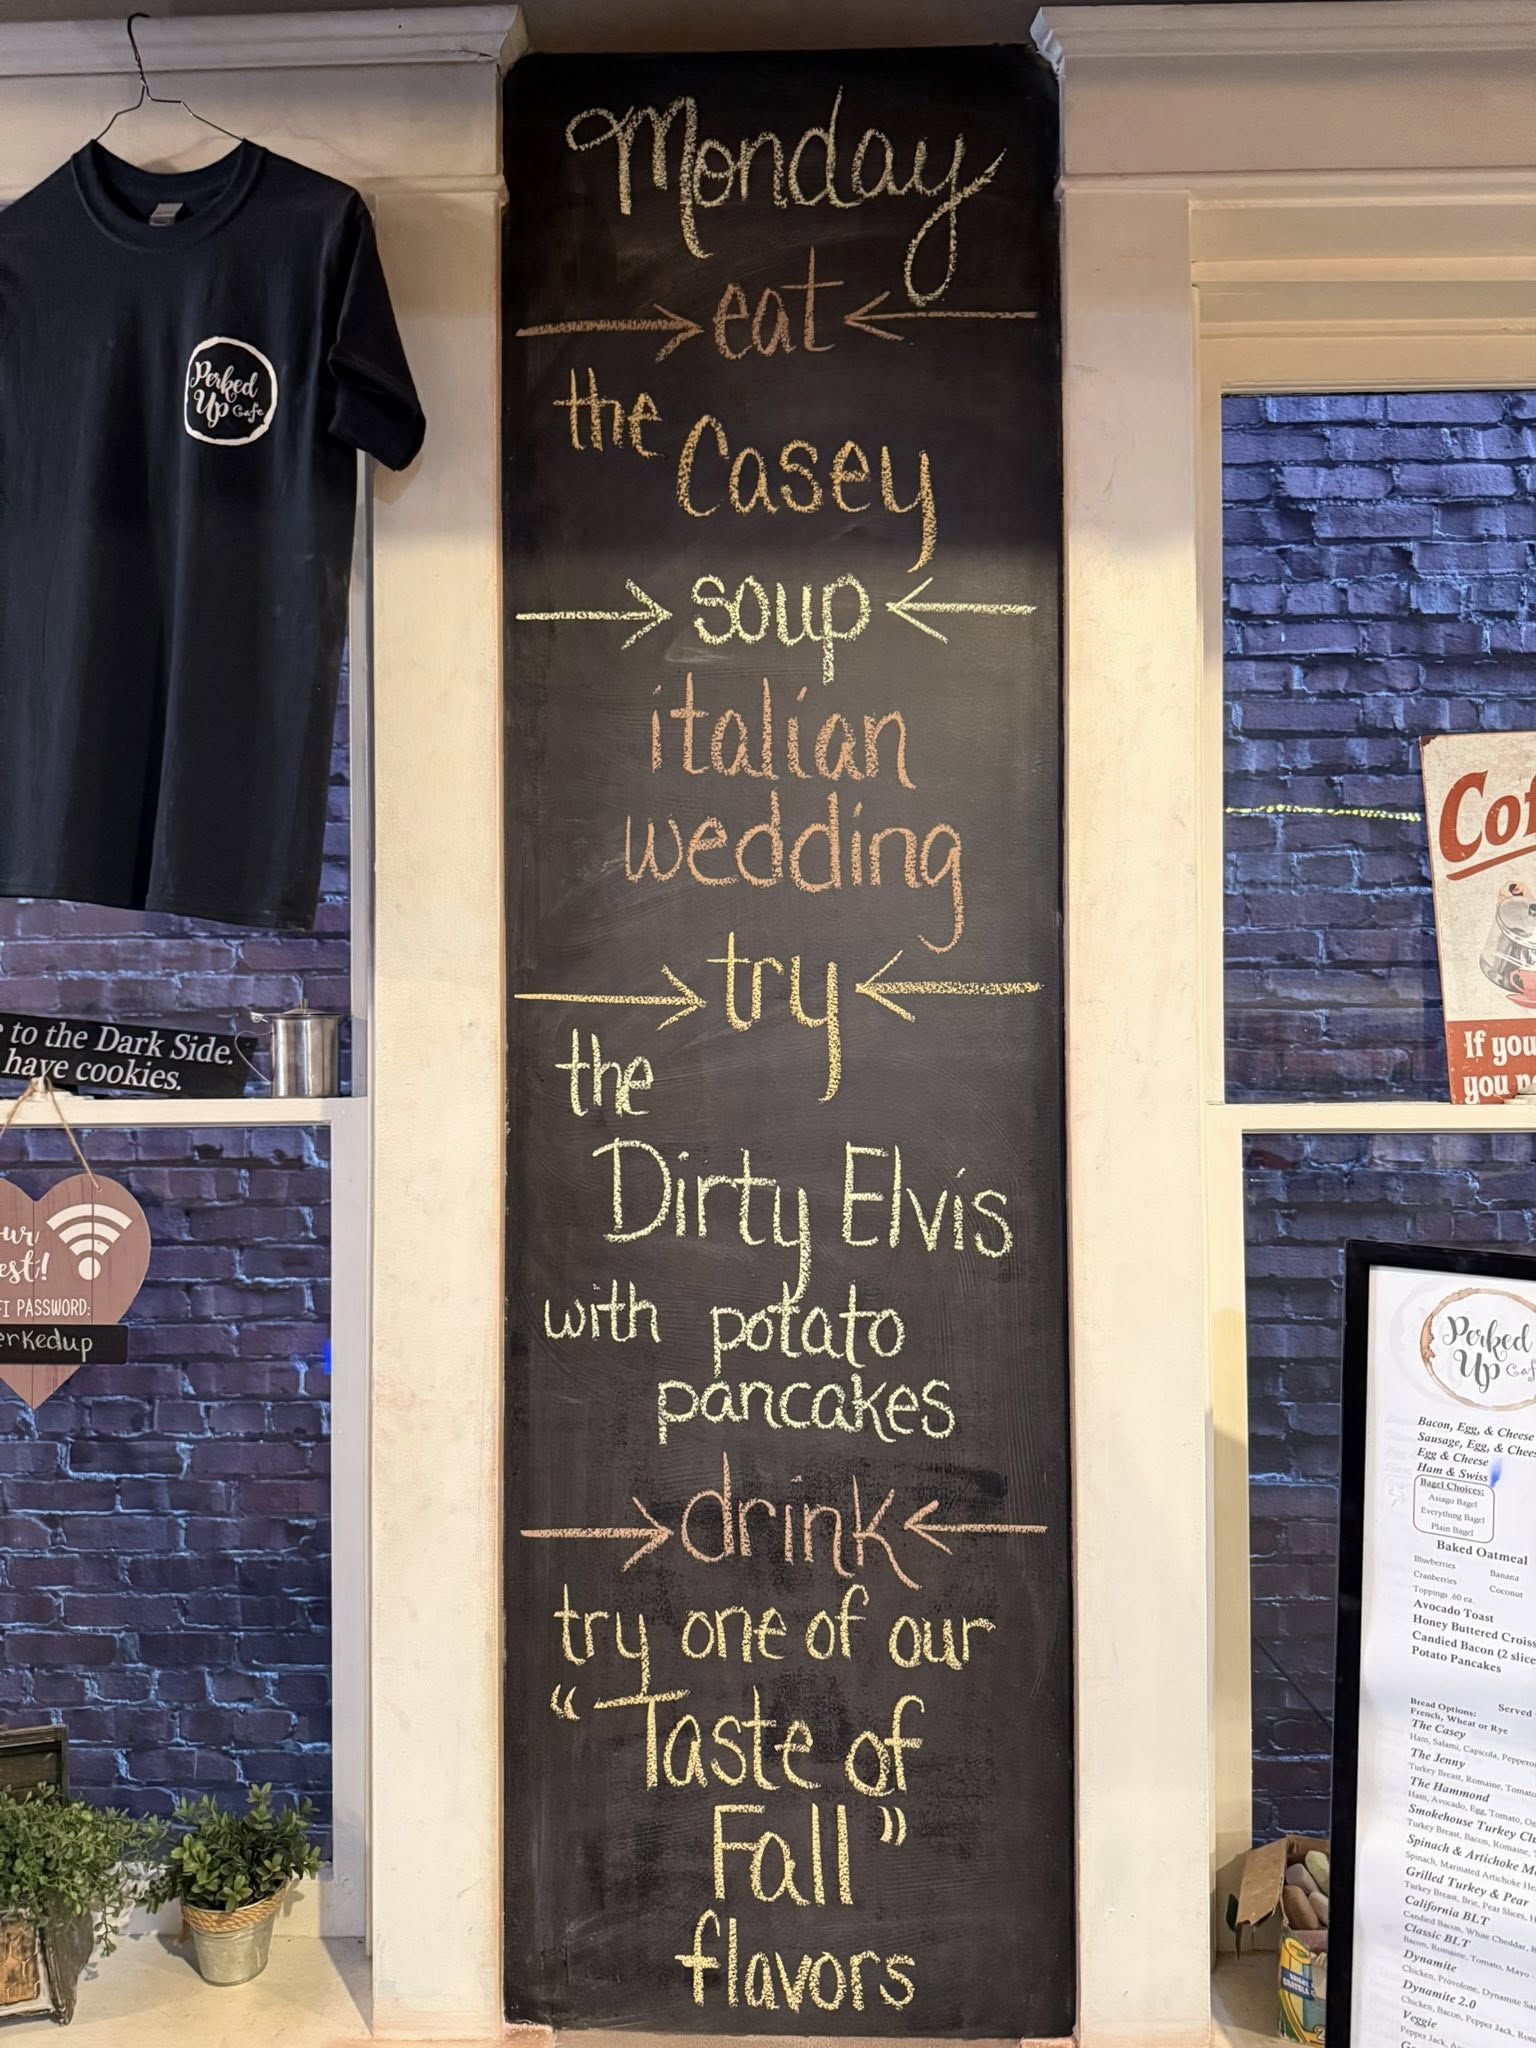 Monday
eat
the Casey
soup
italian
wedding
try
the
Dirty Elvis
with potato
pancakes
drink
try one of our
"Taste of
Fall"
flavors
Perked
Up Cafe
to the Dark Side.
have cookies.
PASSWORD:
If you
you
Perked
Up
Bacon, Egg, & Cheese
Sausage, Egg, &
Egg & Cheese
Ham & Swiss
Bagel Choices:
Asiago Bagel
Everything Bagel
Plain Bagel
Baked Oatmeal
Blueberries Banana
Cranberries Coconut
Toppings .60 ea.
Avocado Toast
Honey Buttered
Candied Bacon (2
Potato Pancakes
Bread Options: Served
French, Wheat or Rye
The Casey
Ham, Salami, Capicola,
The Jenny
Turkey Breast, Romaine,
The Hammond
Ham, Avocado, Egg, Tomato,
Smokehouse Turkey
Turkey Breast, Bacon, Romaine,
Spinach & Artichoke
Spinach, Marinated Artichoke
Grilled Turkey & Pear
Turkey Breast, Brie, Pear Slices,
California BLT
Candied Bacon, White Cheddar,
Classic BLT
Bacon, Romaine, Tomato, Mayo
Dynamite
Chicken, Provolone, Dynamite
Dynamite 2.0
Chicken, Bacon, Pepper Jack,
Veggie
Pepper Jack,